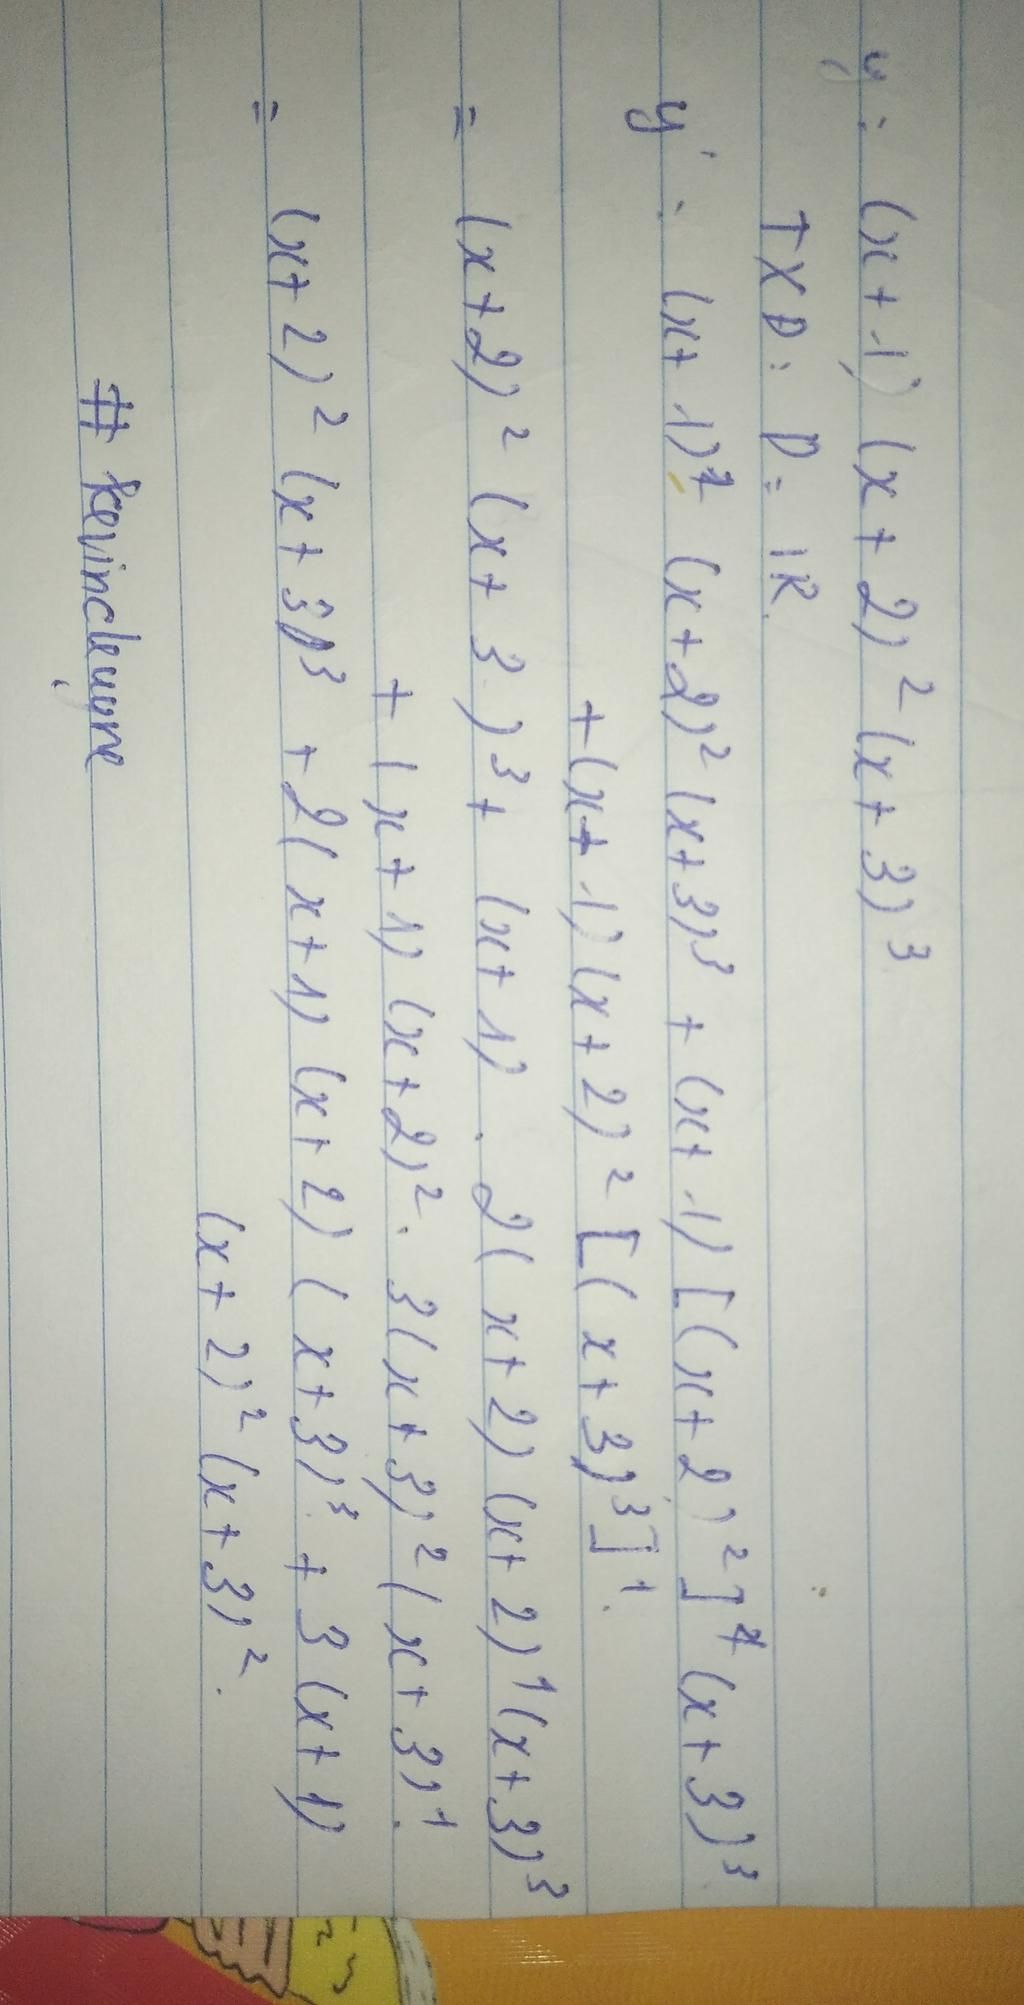 y = (x+1)(x+2)²(x+3)³
TXD: D = IR.
y' = (x+1)' (x+2)² (x+3)³ + (x+1) [(x+2)²]' (x+3)³
+ (x+1)(x+2)² [(x+3)³]'.
= (x+2)² (x+3)³ + (x+1) . 2(x+2)(x+2)'(x+3)³
+ (x+1)(x+2)² . 3(x+3)²(x+3)'.
= (x+2)² (x+3)³ + 2(x+1)(x+2)(x+3)³ + 3(x+1)
(x+2)²(x+3)².